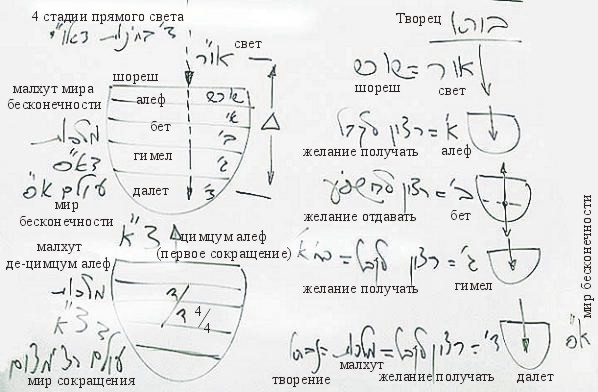 4 стадии прямого света
ד' בחינות דאו"י
אור
свет
шореш
малхут мира
бесконечности
алеф
שורש
א'
бет
ב'
гимел
ג'
далет
ד'
Δ
מלכות
דא"ס
עולם א"ס
мир
бесконечности
צ"א
цимцум алеф
(первое сокращение)
малхут
де-цимцум алеф
מלכות
דצ"א
4
4
עולם הצמצום
мир сокращения
Творец
בורא
אור = שורש
шореш
свет
א' = רצון לקבל
желание получать
алеф
ב' = רצון להשפיע
желание отдавать
бет
ג' = רצון לקבל
желание получать
гимел
ד' = רצון לקבל = מלכות = נברא
малхут
творение
желание получать
далет
א"ס
мир бесконечности